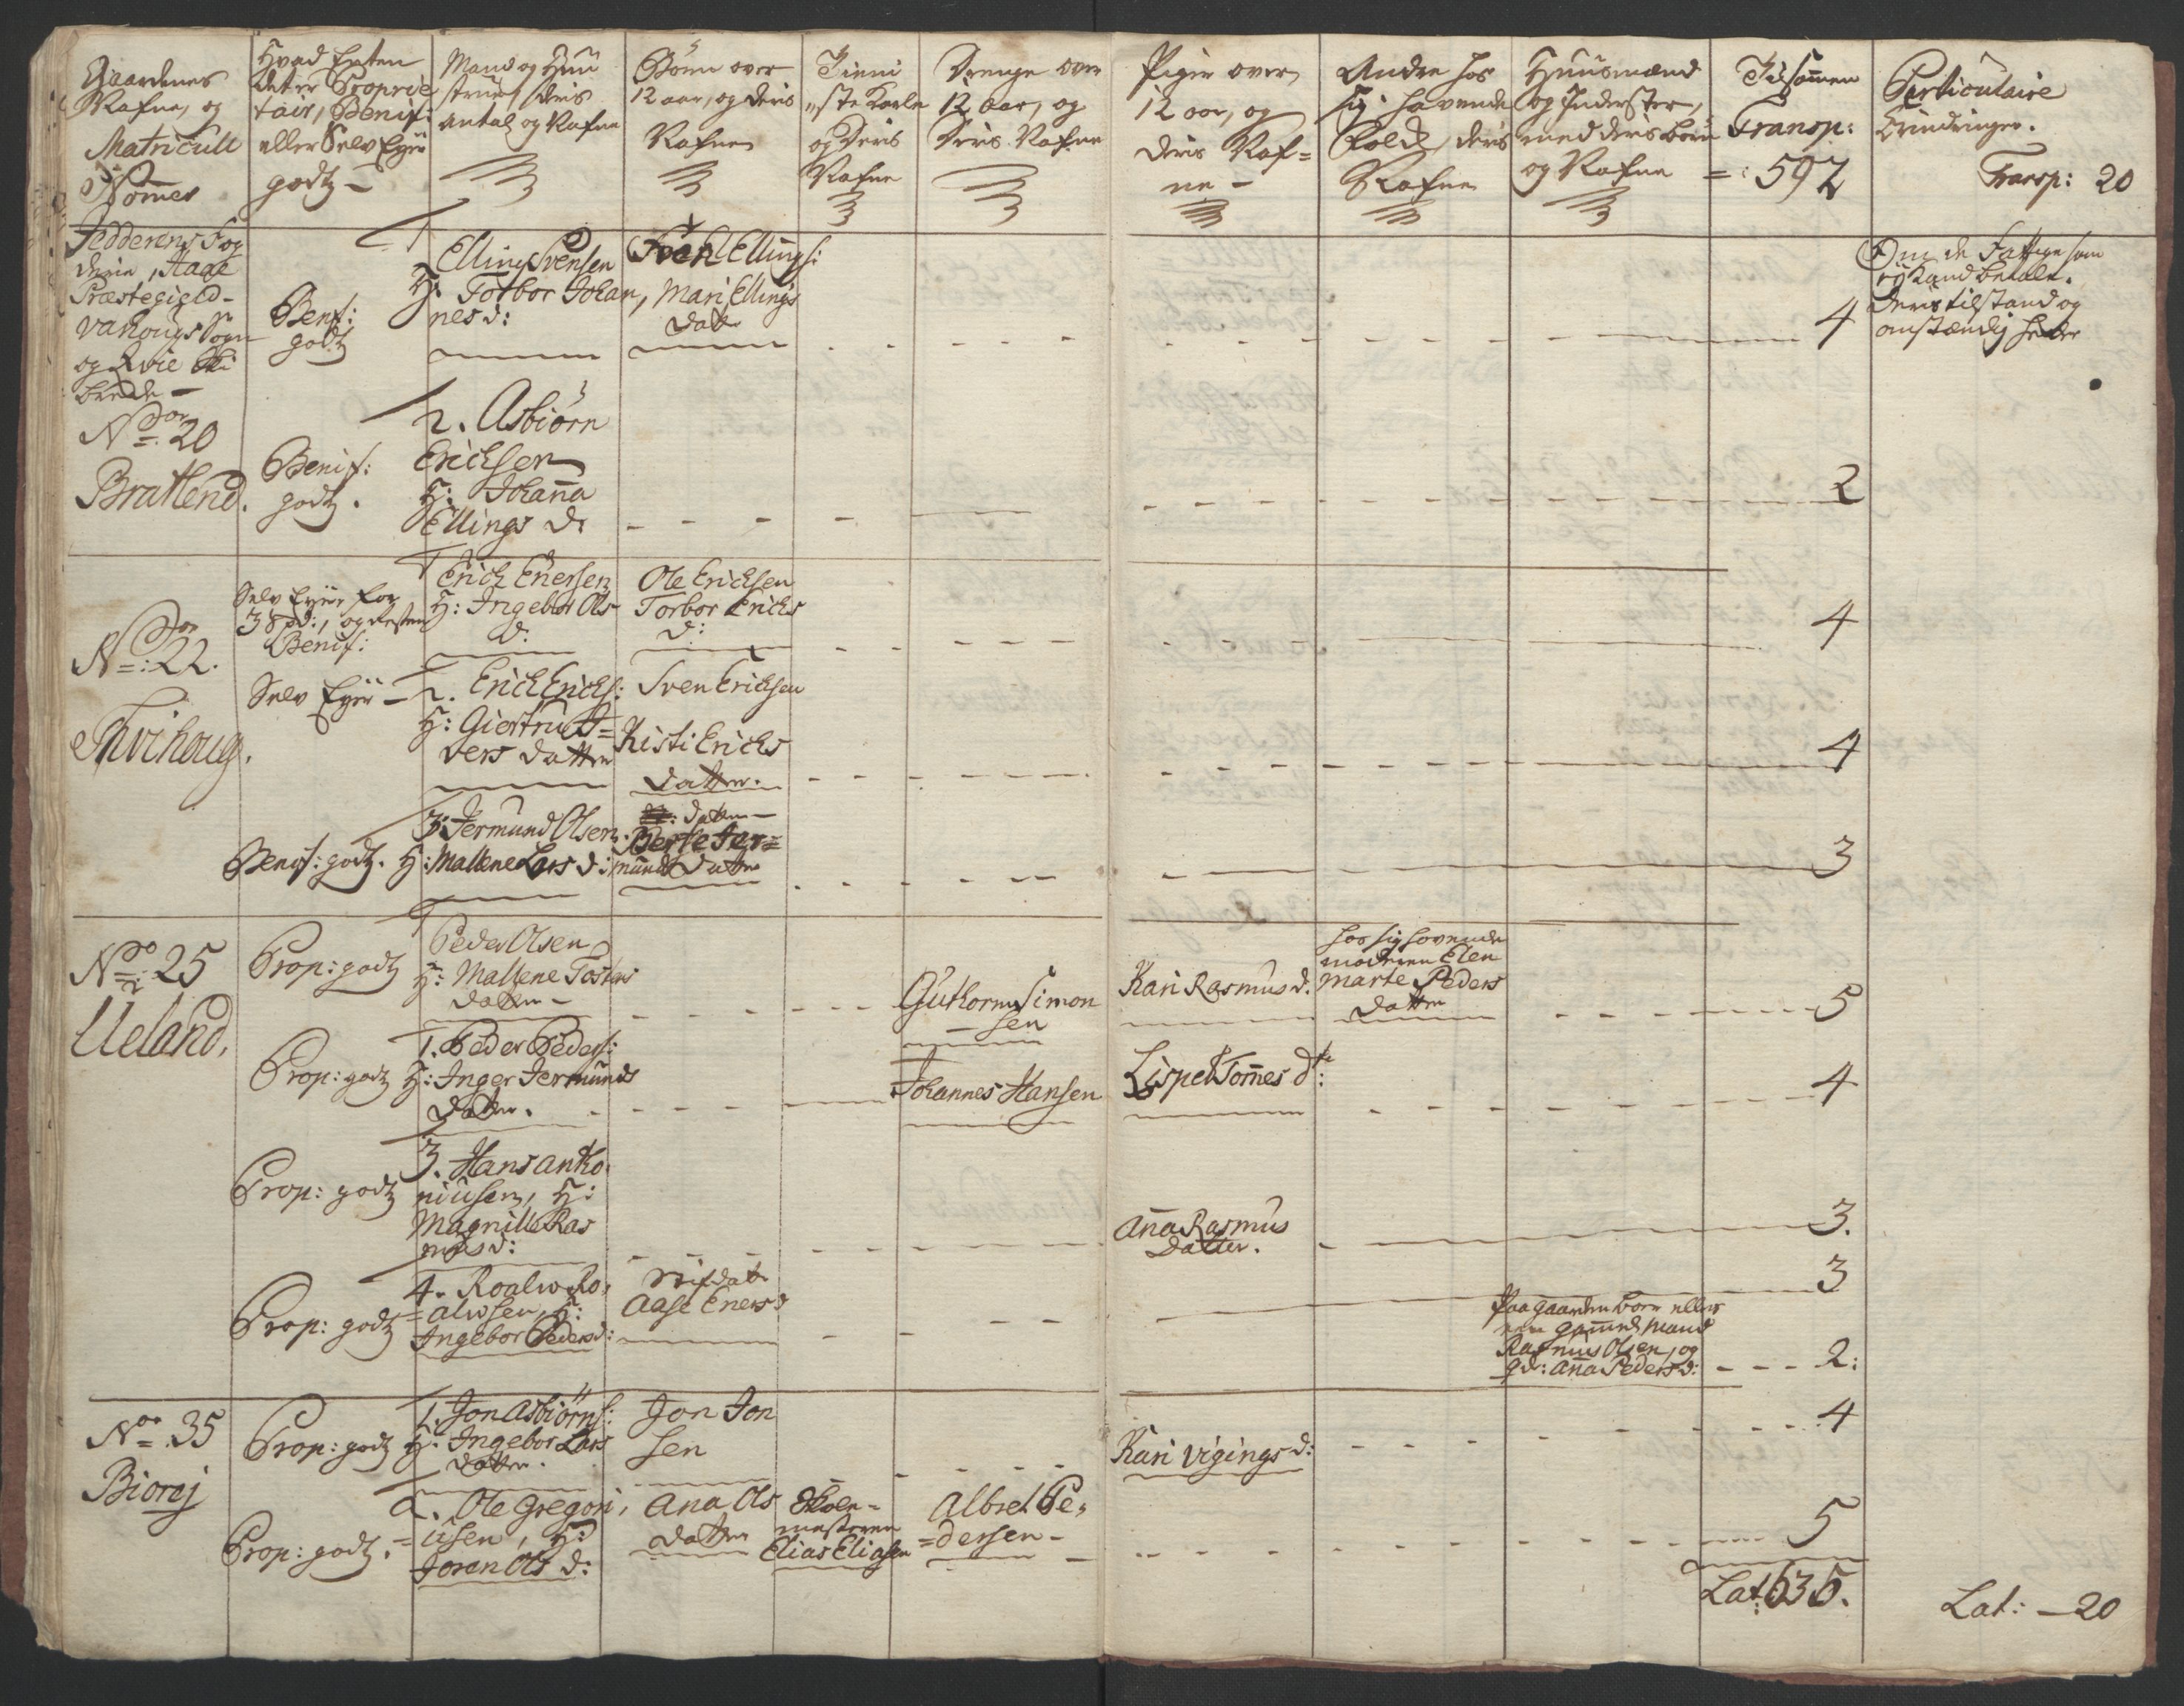 Gaardenes
Nafne, og
Matricull
Nomes
Hvad Enten
det er Proprie
tair, Benif:
eller Selv Eyer
godtz
Mand og Hu
strue, deris
antal og Nafne
Børn over
12 aar, og deris
Nafne
Tieni
ste Karle
og deris
Nafne
Drenge over
12 aar, og
deris Nafne
Piger over
12 aar, og
deris Naf=
ne
Andre hos
sig havende
Folck, deris
Nafne
Huusmænd
og Inderster,
med deris børn
og Nafne
Tilsammen
Transp:
592
Particulaire
Erindringer.
Transp: 20
Jedderens Fog
derie, Haae
Præstegield
Varhougs Sogn
og Qvie Ski
brede
No 20
Brattend.
Benf:
godtz
1
Elling Svensen
H: Torbor Johan
nes d:
Sven Ellings:
Mari Ellings
datr
4
Om de Fattige som
ey kand betale,
deris tilstand og
omstændig heder
Benif:
godtz.
2. Asbiørn
Ericksen
H: Johanna
Ellings d:
2
No 22.
Tvihoug.
Selv Eyer for
3 Spd:, og Resten
Benif:
1 Erich Enersen
H: Ingebor Ols
d:
Ole Ericksen
Torbor Erichs
d:
4
Selv Eyer
2. Erich Erichs:
H: Giertru
vers datter
Sven Erichsen
Kisti Erichs
datter.
4
Benif: godtz.
3. Jermund Olsen.
H: Mallene Lars d:
datter
Berte Jer=
munds datter
3
No 25
Ueland.
Prop: godtz
Peder Olsen
H: Mallene Tosters
datter
Guthorm Simon
sen
Kari Rasmus d.
hos sig havende
moderen Elen
Marte Peders
datter
5
Prop: godtz
1. Peder Peders:
H: Inger Jermunds
datter.
Johannes Hansen
Lispet Tomes dtr:
4
Prop: godtz
3. Hans antho
niusen, H:
Magnille Ras
mus d:
Ana Rasmus
Datter.
3.
Prop: godtz
4. Roalw Ro,
=alwsen, H:
Ingebor Peders d:
Stifdatr
Aase Eners d
3
Paa gaarden boer
gammel Mand
Rasmus Olsen, og
qd: Ana Peders d:
2:
No 35
Biorej
Prop: godtz
1. Jon Asbiørns:
H: Ingebor Lars
datter.
Jon Jon
sen
Kari Vigings d:
4
Prop: godtz.
2. Ole Gregori,
=usen, H:
Joran Ols d:
Ana Ols
datter
Skole=
mesteren
Elias Eliasen
Albret Pe,
=dersen
5
Lat: 635.
Lat: 20